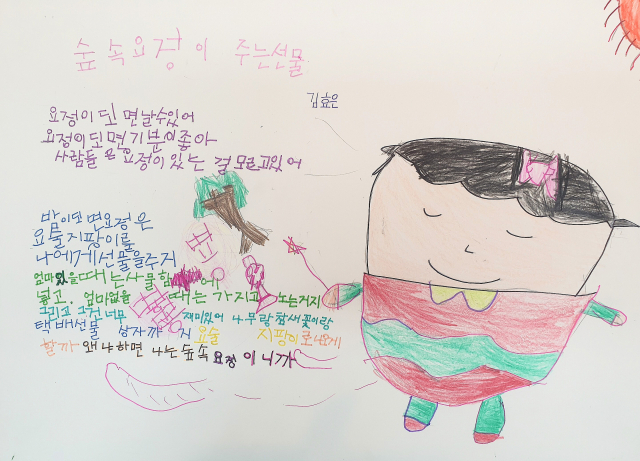 숲 속 요정이 주는선물
김효은
요정이 되 면날수있어
요정이되면기분이좋아
사람들 은 요정이 있 는 걸 모르고있 어
밤이되 면요정은
요술지팡이를
나에게선물을주거
엄마있을때 는사물함 에
넣고. 엄마없을 때는 가지고 노는거지
그리고 그건 너무 재미있어 나무랑참새꽃이랑
택배선물 상자까 지 거 요술 지팡이로나온게
할까 왜냐하면 나는숲속 요정 이 니까